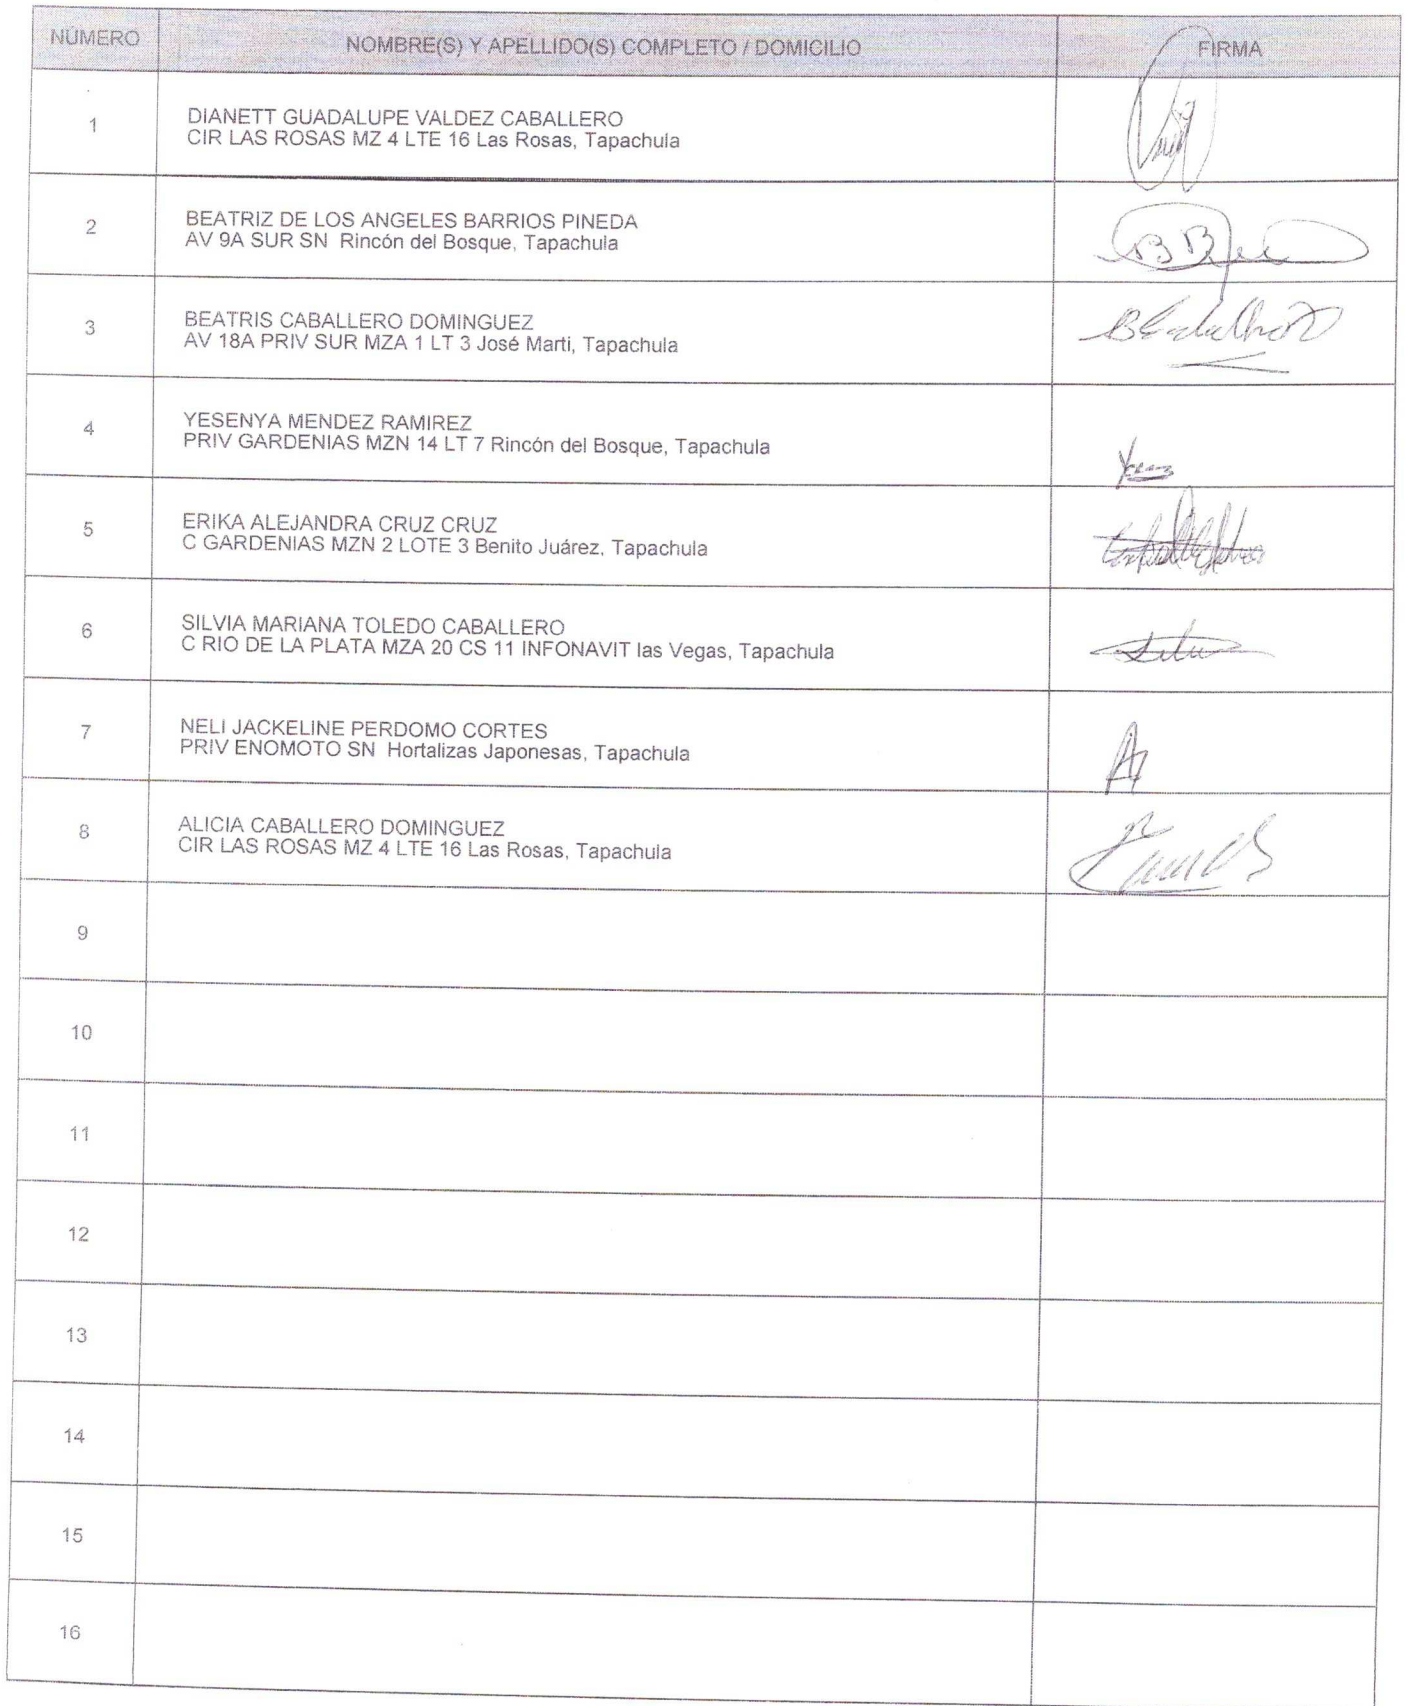 NÚMERO NOMBRE(S) Y APELLIDO(S) COMPLETO / DOMICILIO FIRMA
1 DIANETT GUADALUPE VALDEZ CABALLERO
CIR LAS ROSAS MZ 4 LTE 16 Las Rosas, Tapachula
2 BEATRIZ DE LOS ANGELES BARRIOS PINEDA
AV 9A SUR SN Rincón del Bosque, Tapachula
3 BEATRIS CABALLERO DOMINGUEZ
AV 18A PRIV SUR MZA 1 LT 3 José Marti, Tapachula
4 YESENYA MENDEZ RAMIREZ
PRIV GARDENIAS MZN 14 LT 7 Rincón del Bosque, Tapachula
5 ERIKA ALEJANDRA CRUZ CRUZ
C GARDENIAS MZN 2 LOTE 3 Benito Juárez, Tapachula
6 SILVIA MARIANA TOLEDO CABALLERO
C RIO DE LA PLATA MZA 20 CS 11 INFONAVIT las Vegas, Tapachula
7 NELI JACKELINE PERDOMO CORTES
PRIV ENOMOTO SN Hortalizas Japonesas, Tapachula
8 ALICIA CABALLERO DOMINGUEZ
CIR LAS ROSAS MZ 4 LTE 16 Las Rosas, Tapachula
9
10
11
12
13
14
15
16